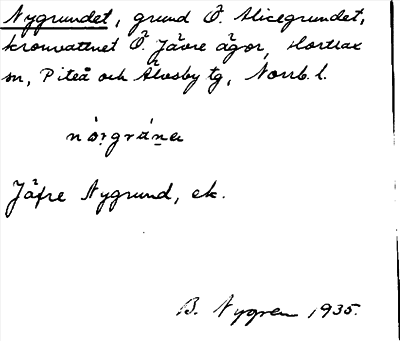 Nygrundet, grund Ö. Alicegrundet,
kronvattnet Ö. Jävre ägor, Hortlax
sn, Piteå och Älvsby tg, Norrb. l.
Jäfre Nygrund, ek.
B. Nygren 1935.